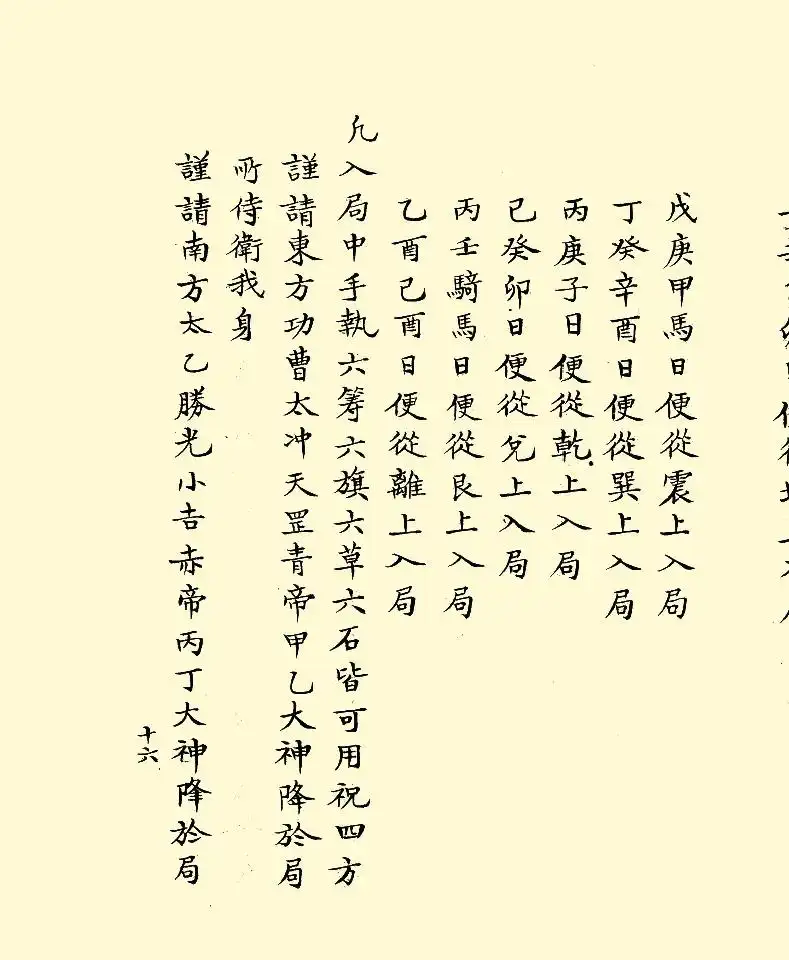 戊庚甲馬日便從震上入局
丁癸辛酉日便從巽上入局
丙庚子日便從乾上入局
己癸卯日便從兌上入局
丙壬騎馬日便從艮上入局
乙酉己酉日便從離上入局
凡入局中手執六筹六旗六草六石皆可用祝四方
謹請東方功曹太冲天罡青帝甲乙大神降於局
所侍衛我身
謹請南方太乙勝光小吉赤帝丙丁大神降於局
十六